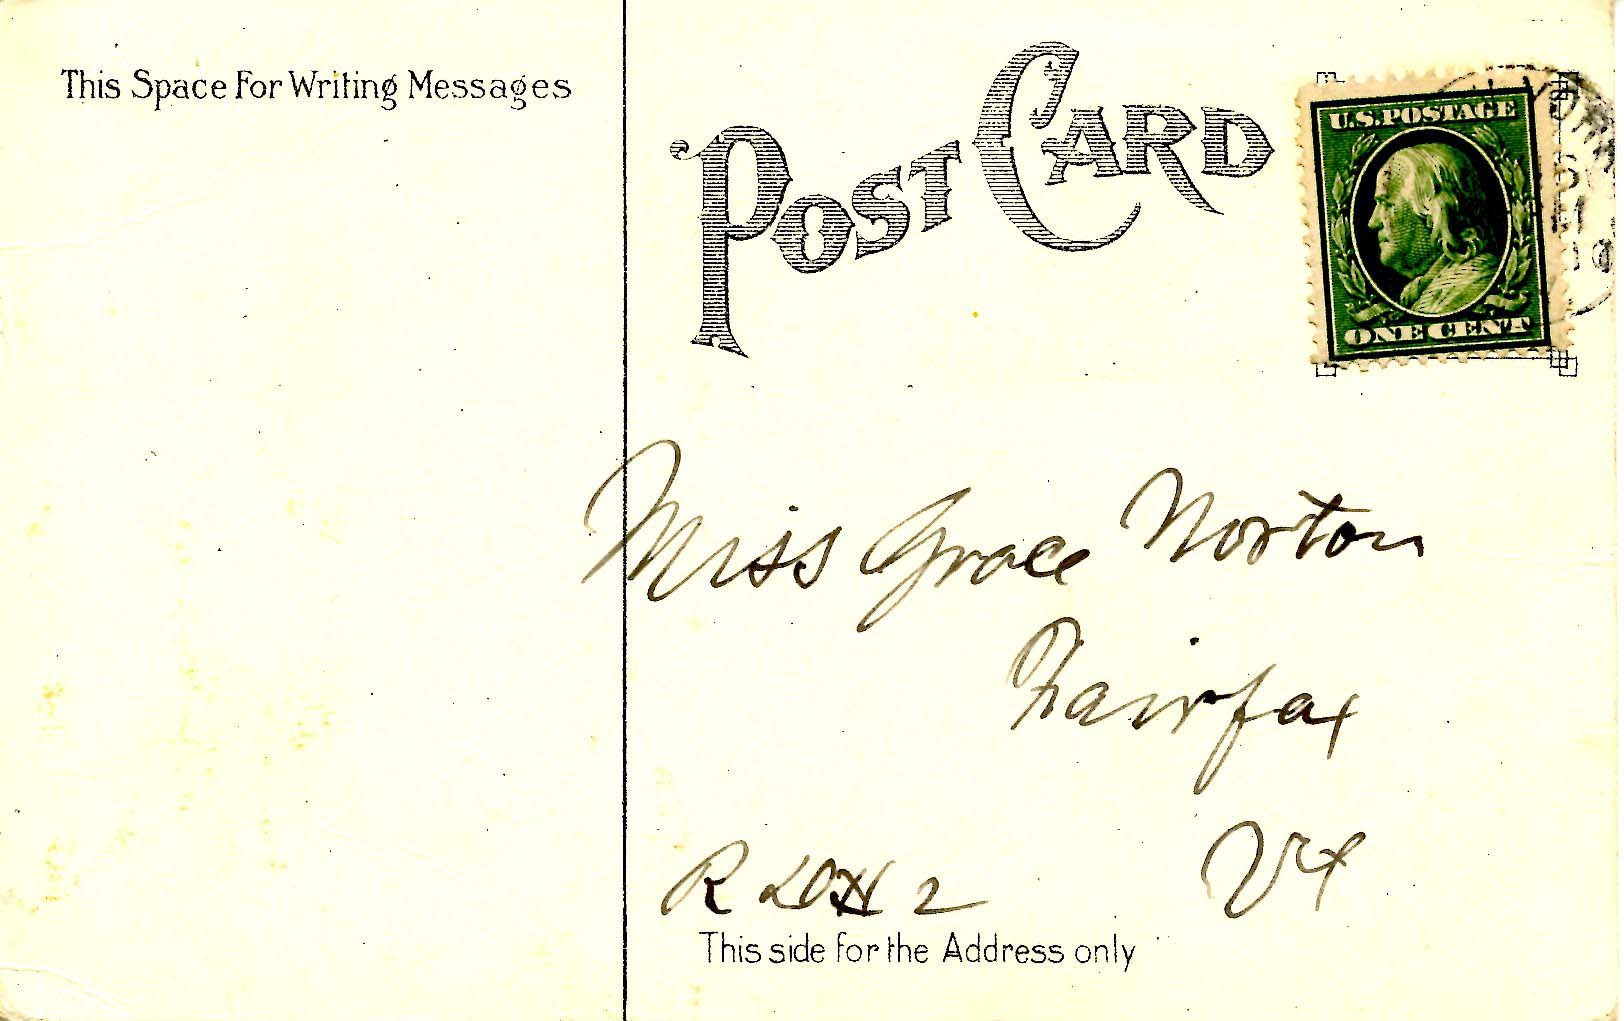 This Space For Writing Messages
POST CARD
U.S. POSTAGE
ONE CENT
Miss Grace Norton
Fairfax
Vt
R D # 2
This side for the Address only